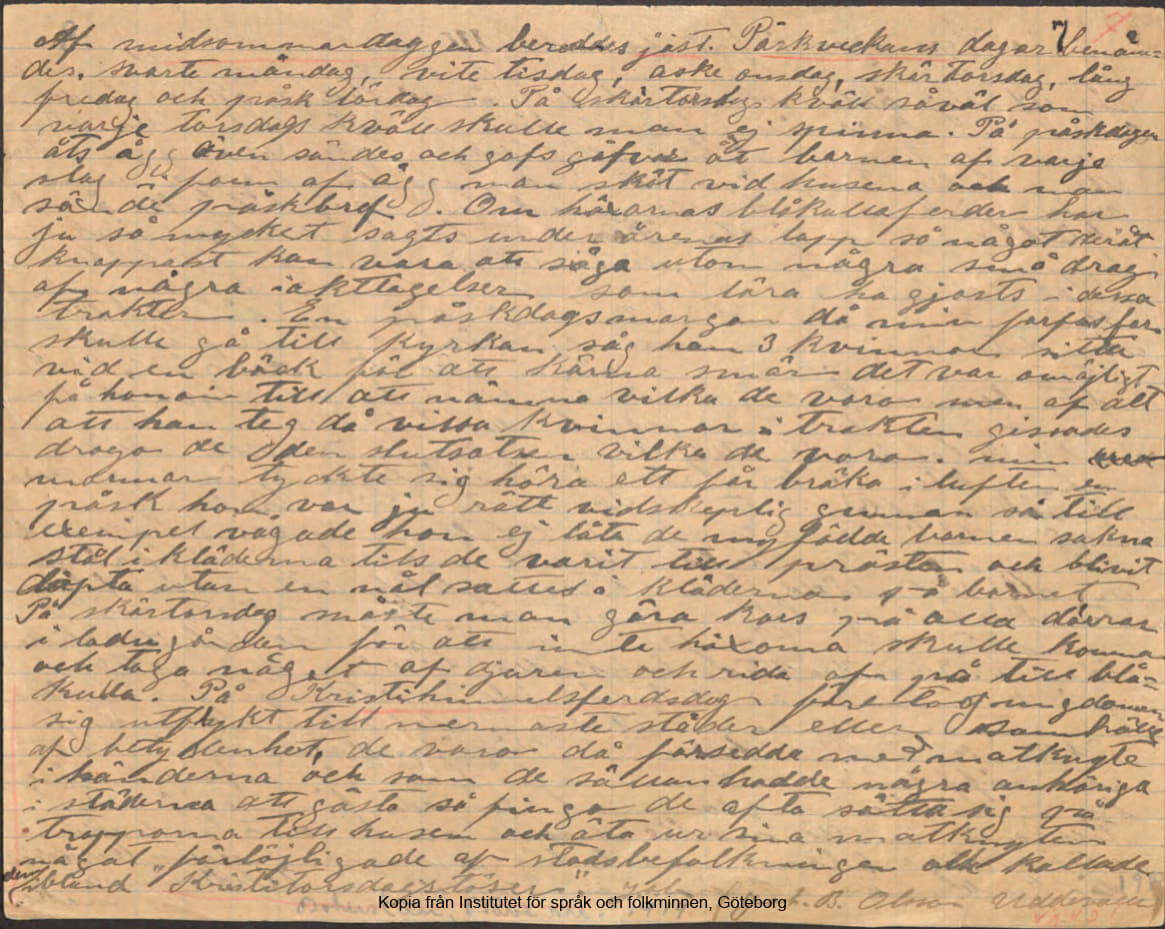 Af midsommardaggen bereddes jäst. Påskveckans dagar benäm=
des, svarte måndag, vite tisdag, aske onsdag, skär torsdag, lång
fredag och påsk lördag. På skärtorsdags kväll såväl som
varje torsdags kväll skulle man ej spinna. På påskdagen
åts ägg även sändes och gafs gåfvor åt barnen af varje
slag i form af ägg man sköt vid husena och man
sände påskbref. Om häxornas blåkullafärder har
ju så mycket sagts under årenas lopp så något deråt
knappast kan vara att säga utom några små drag
af några iakttagelser som lära ha gjorts i dessa
trakter. En påskdagsmorgon då min farfars far
skulle gå till kyrkan såg han 3 kvinnor sitta
vid en bäck för att kärna smör det var omöjligt
få honom till att nämna vilka de voro men af alt
att han teg då vissa kvinnor i trakten gissades
drogo de den slutsatsen vilka de voro. min
mormor tyckte sig höra ett får bräka i luften en
påsk hon var ju rätt vidskeplig gumman så till
exempel vågade hon ej låta de nyfödda barnen sakna
stål i kläderna tils de varit till prästen och blivit
döpta utan en nål sattes i kläderna på barnet
På skärtorsdag måste man göra kors på alla dörrar
i ladugården för att inte häxorna skulle komma
och taga något af djuren och rida af på till blå=
kulla. På Kristihimmelsferdsdag företog ungdomen
sig utflykt till närmaste städer eller samhälle
af betydenhet, de voro då försedda med matknyte
i händerna och som de sällan hadde några anhöriga
i städerna att gästa så fingo de ofta sätta sig på
trapporna till husen och äta ur sina matknyten
något förlöjligade af stadsbefolkningen och kallade
dem ibland "Kristitorsdagstöser"
Olsson Uddevalla
7
Kopia från Institutet för språk och folkminnen, Göteborg